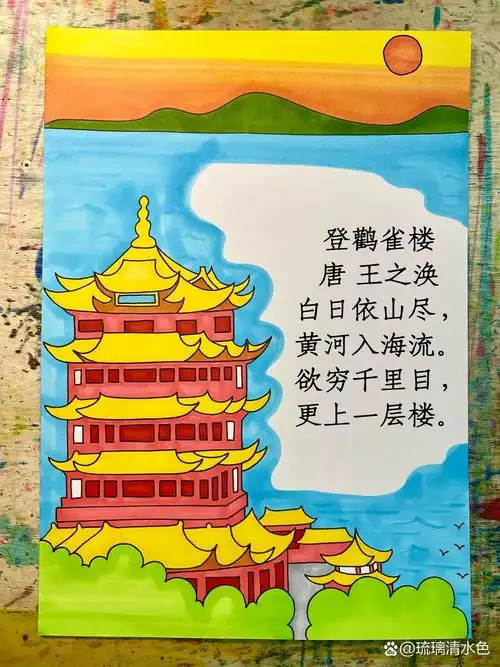 登鸛雀楼
唐 王之涣
白日依山尽，
黄河入海流。
欲穷千里目，
更上一层楼。
@琉璃清水色